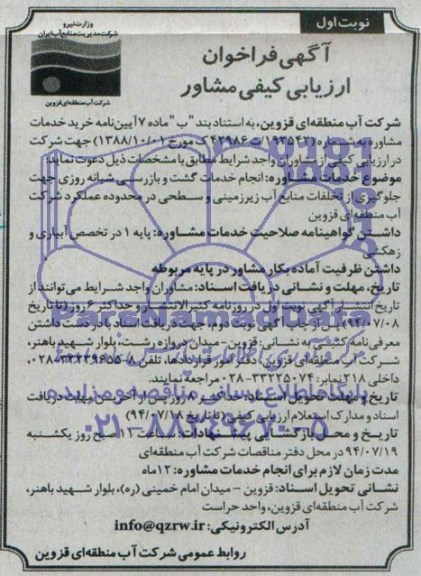 نوبت اول
وزارت نیرو
شرکت مدیریت منابع آب ایران
شرکت آب منطقه‌ای قزوین
آگهی فراخوان
ارزیابی کیفی مشاور
شرکت آب منطقه‌ای قزوین، به استناد بند "ب" ماده ۷ آیین‌نامه خرید خدمات
مشاوره به شماره (۱۹۳۵۴۲/ت ۴۲۹۸۶ ک مورخ ۱۳۸۸/۱۰/۰۱) جهت شرکت
در ارزیابی کیفی از مشاوران واجد شرایط مطابق با مشخصات ذیل دعوت نماید:
موضوع خدمات مشاوره: انجام خدمات گشت و بازرسی شبانه روزی جهت
جلوگیری از تخلفات منابع آب زیرزمینی و سطحی در محدوده عملکرد شرکت
آب منطقه‌ای قزوین
داشتن گواهینامه صلاحیت خدمات مشاوره: پایه ۱ در تخصص آبیاری و
زهکشی
داشتن ظرفیت آماده بکار مشاور در پایه مربوطه
تاریخ، مهلت و نشانی دریافت اسناد: مشاوران واجد شرایط می‌توانند از
تاریخ انتشار آگهی نوبت اول در روزنامه کثیرالانتشار و حداکثر ۶ روز (تا تاریخ
۹۴/۰۷/۰۸) پس از چاپ آگهی نوبت دوم، جهت دریافت اسناد با در دست داشتن
معرفی‌نامه کتبی به نشانی: قزوین - میدان دروازه رشت، بلوار شهید باهنر،
شرکت آب منطقه‌ای قزوین، دفتر امور قراردادها، تلفن ۸-۳۳۲۳۹۶۵۵-۰۲۸،
داخلی ۲۱۸ نمابر: ۳۳۲۲۵۰۷۴-۰۲۸ مراجعه نمایند.
تاریخ و مهلت تحویل اسناد: روز پس از آخرین مهلت دریافت
اسناد و مدارک استعلام ارزیابی کیفی (تا تاریخ ۹۴/۰۷/۱۸)
تاریخ و محل بازگشایی پیشنهادات: ساعت صبح روز یکشنبه
۹۴/۰۷/۱۹ در محل دفتر مناقصات شرکت آب منطقه‌ای
مدت زمان لازم برای انجام خدمات مشاوره: ۱۲ ماه
نشانی تحویل اسناد: قزوین - میدان امام خمینی (ره)، بلوار شهید باهنر،
شرکت آب منطقه‌ای قزوین، واحد حراست
آدرس الکترونیکی: info@qzrw.ir
روابط عمومی شرکت آب منطقه‌ای قزوین
ParsNamadData
پایگاه اطلاع رسانی مناقصه و مزایده
۰۲۱-۸۸۳۴۹۶۷۰-۵